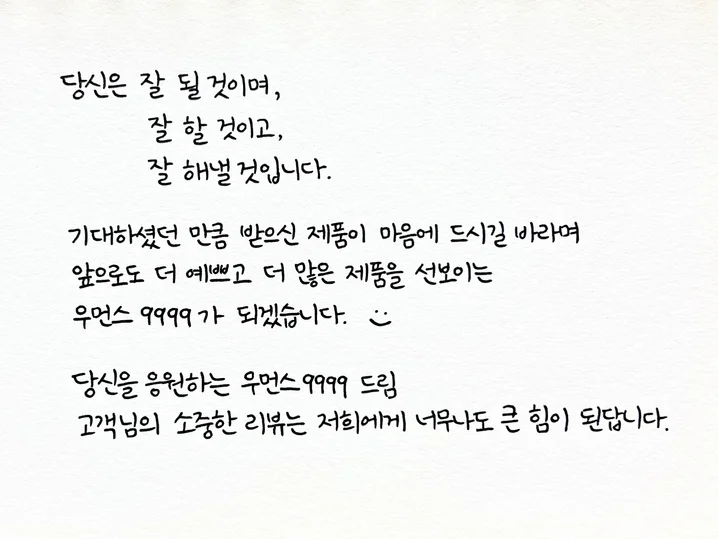 당신은 잘 될 것이며,
잘 할 것이고,
잘 해낼 것입니다.
기대하셨던 만큼 받으신 제품이 마음에 드시길 바라며
앞으로도 더 예쁘고 더 많은 제품을 선보이는
우먼스 9999가 되겠습니다. :)
당신을 응원하는 우먼스9999 드림
고객님의 소중한 리뷰는 저희에게 너무나도 큰 힘이 된답니다.